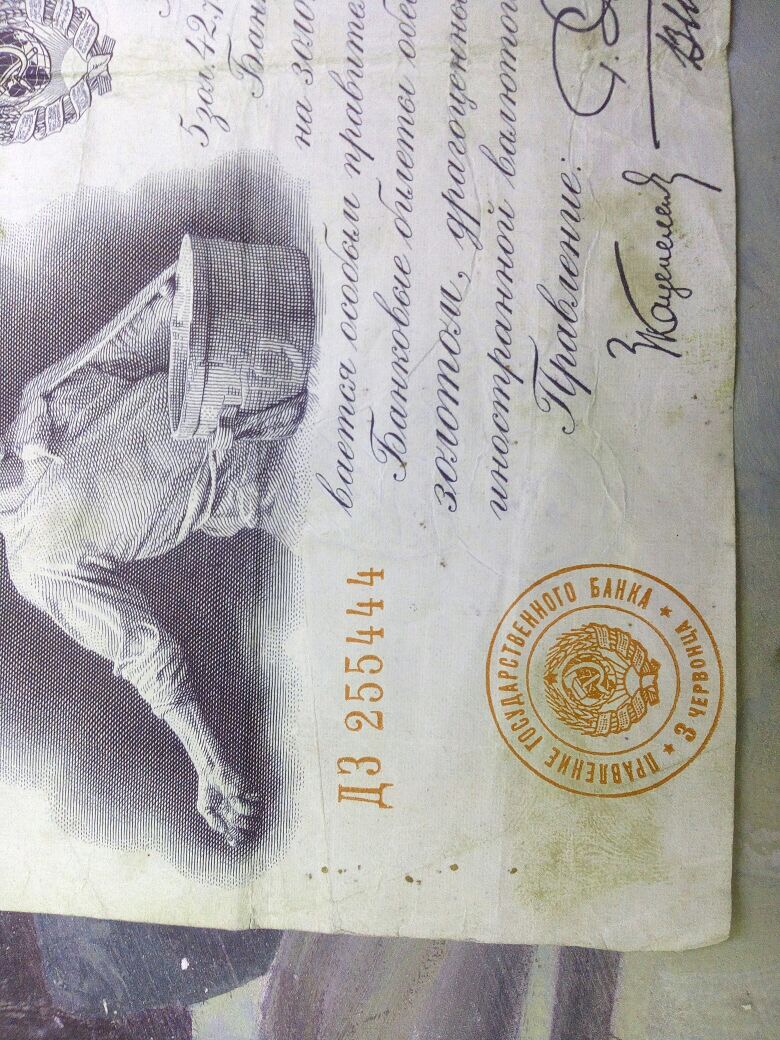 5 зол. 42,
Бан
на золо
вается особым правите
Банковые билеты обес
золотом, драгоценно
иностранной валютою
Правление:
ДЗ 255444
ПРАВЛЕНИЕ ГОСУДАРСТВЕННОГО БАНКА
★ 3 ЧЕРВОНЦА ★